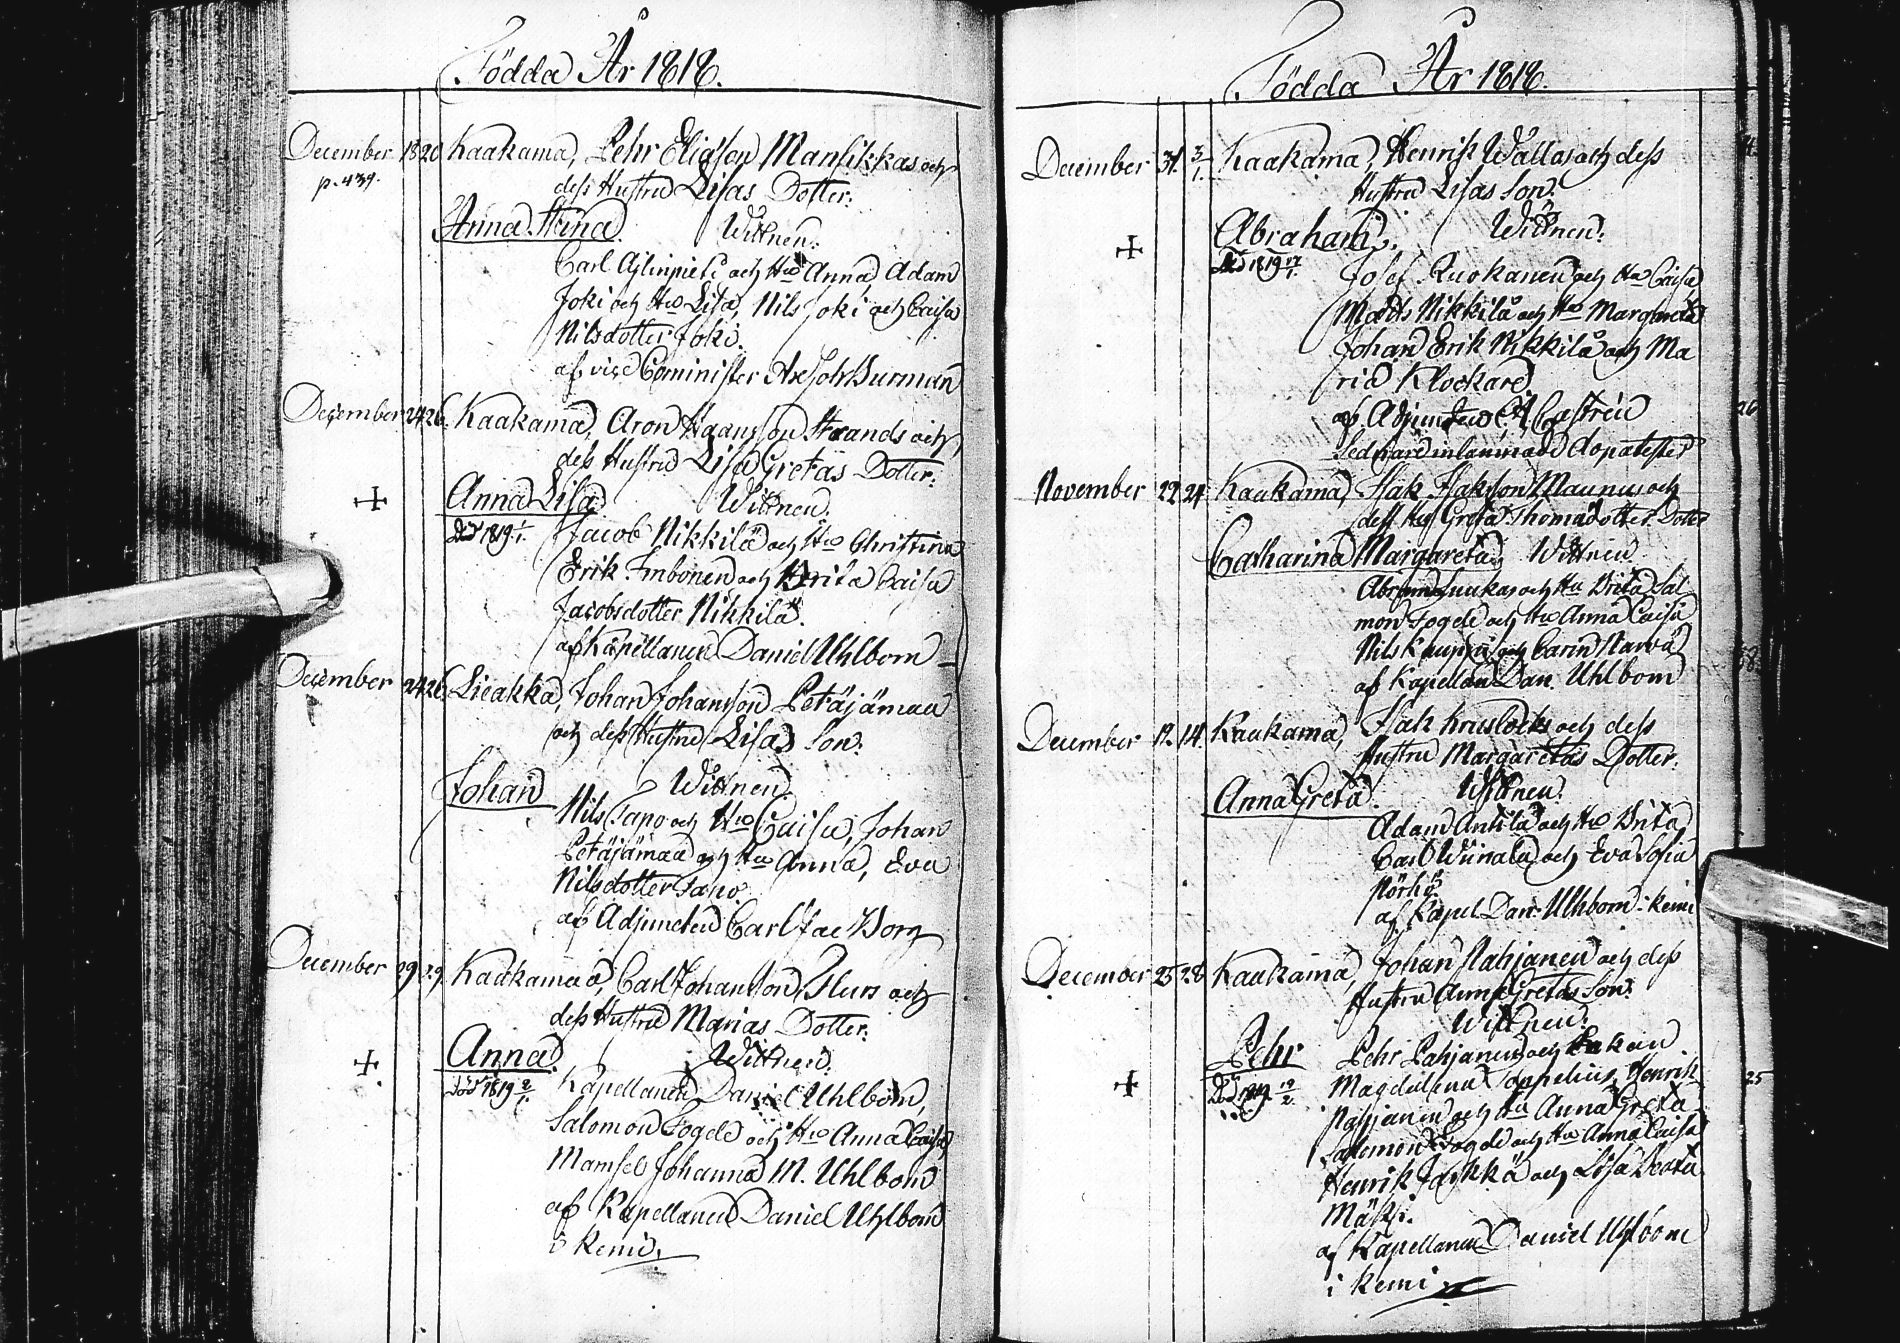 Födda År 1818.
December 18 20 Kaakama, Pehr Eliasson Mansikkas och
p. 439. dess Hustru Lisas Dotter.
Anna Stina. Wittnen:
Carl och Hu Anna, Adam
Joki och Hu Lisa, Nils Joki och Caisa
Nilsdotter Joki.
af vice Cominister Joh Burman
December 24 26. Kaakama, Aron Strands och
dess Hustru Lisa Gretas Dotter.
Anna Lisa Wittnen.
Död 1819 Jacob Nikkilä och Hu Christina
Erik Imbonen och Brita Caisa
Jacobsdotter Nikkilä.
af Kapellanen Daniel Uhlbom
December 24 26. Lieakka, Johan Johansson Petäjämaa
och dess Hustru Lisas Son.
Johan Wittnen.
Nils Tapo och Hu Caisa, Johan
Petäjämaa och Hu Anna, Eva
Nilsdotter Tapo.
af Adjuncten Carl Jac Borg
December 29 29. Kaakama, Carl Johansson och
dess Hustru Marias Dotter.
Anna Wittnen.
Död 1819 2/1. Kapellanen Daniel Uhlbom,
Salomon Fogde och Hu Anna Caisa
Mamsel Johanna M. Uhlbom
af Kapellanen Daniel Uhlbom
i Kemi.
Födda År 1818.
December 31. 3/1. Kaakama, Henrik Wällas och dess
Hustru Lisas Son.
Abraham. Wittnen:
Död 1819 17/1. Josef Ruokanen och Hu Caisa
Matts Nikkilä och Hu Margareta
Johan Erik Nikkilä och Ma
ria Klockare
af Adjuncten Castrén
Sednare inlämnade dopatester
November 22 24 Kaakama, Isak Isaksson Maunus och
dess Hus Greta Thomasdotters Dotter
Catharina Margareta. Wittnen
Abram Luukas och Hu Brita Sal
mon Fogde och Hu Anna Caisa
Nils Kauppi och Carin
af Kapellan Dan. Uhlbom
December 12. 14. Kaakama, Isak och dess
Hustru Margaretas Dotter.
Anna Greta. Wittnen.
Adam Anttila och Hu Brita
Carl och Eva Sofia
Pörhö
af Kapel Dan Uhlbom i Kemi
December 25 28 Kaakama, Johan Pahjanen och dess
Hustru Anna Gretas Son.
Wittnen:
Pehr Pehr Pahjanen och Enkan
Död 1819 19/2. Magdalena Toppelius, Henrik
Pahjanen och Hu Anna Greta
Salomon Fogde och Hu Anna Caisa
Henrik Jaykkä och Lisa Beata
Mäki.
af Kapellanen Daniel Uhlbom
i Kemi